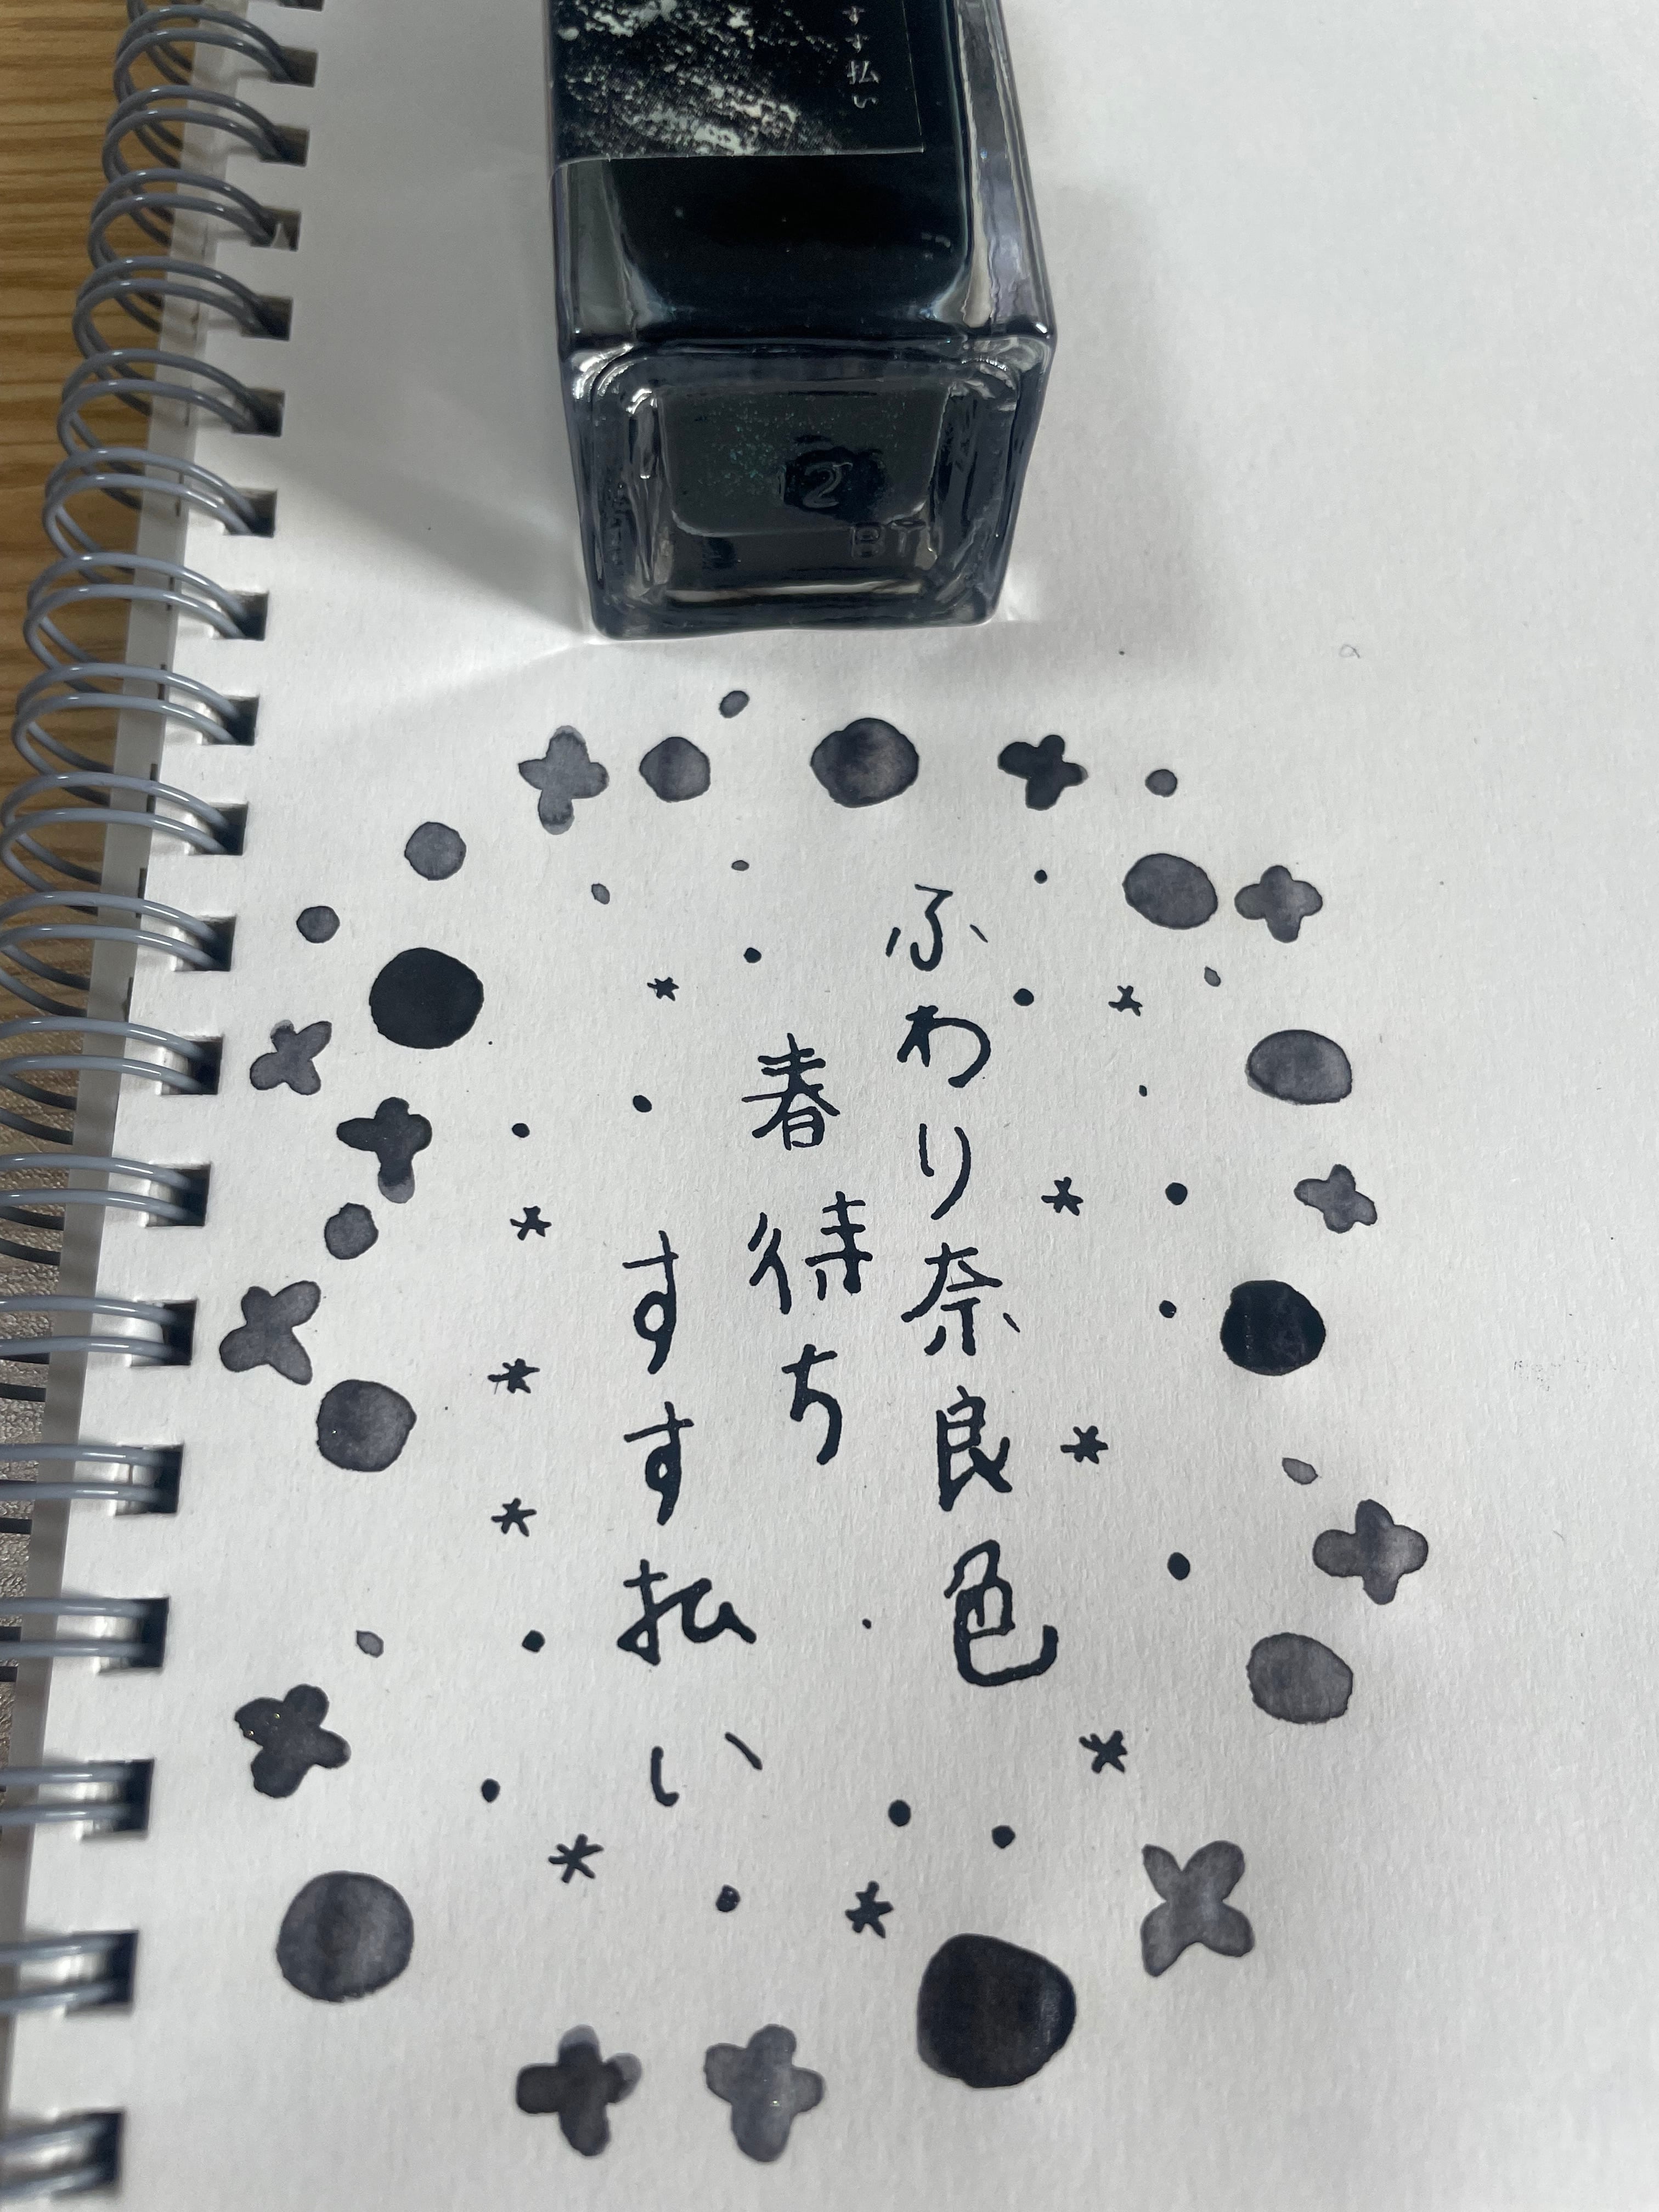 すす払い
2
ふわり奈良色
春待ち
すす払い